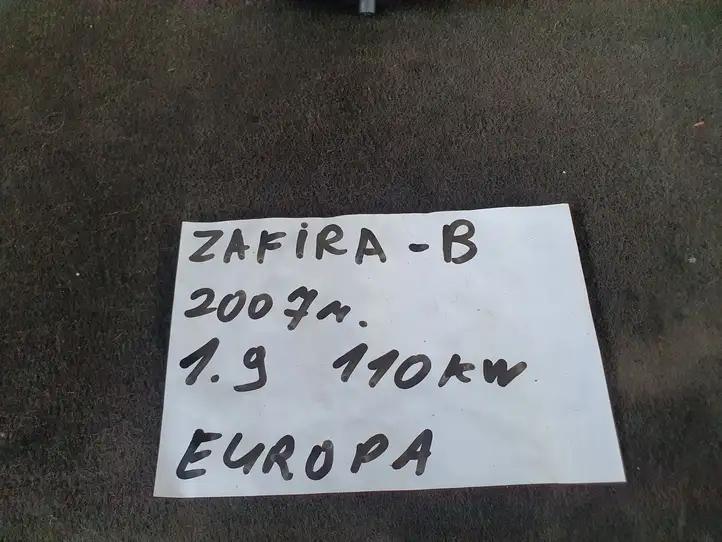 ZAFIRA - B
2007m.
1.9 110kW
EUROPA